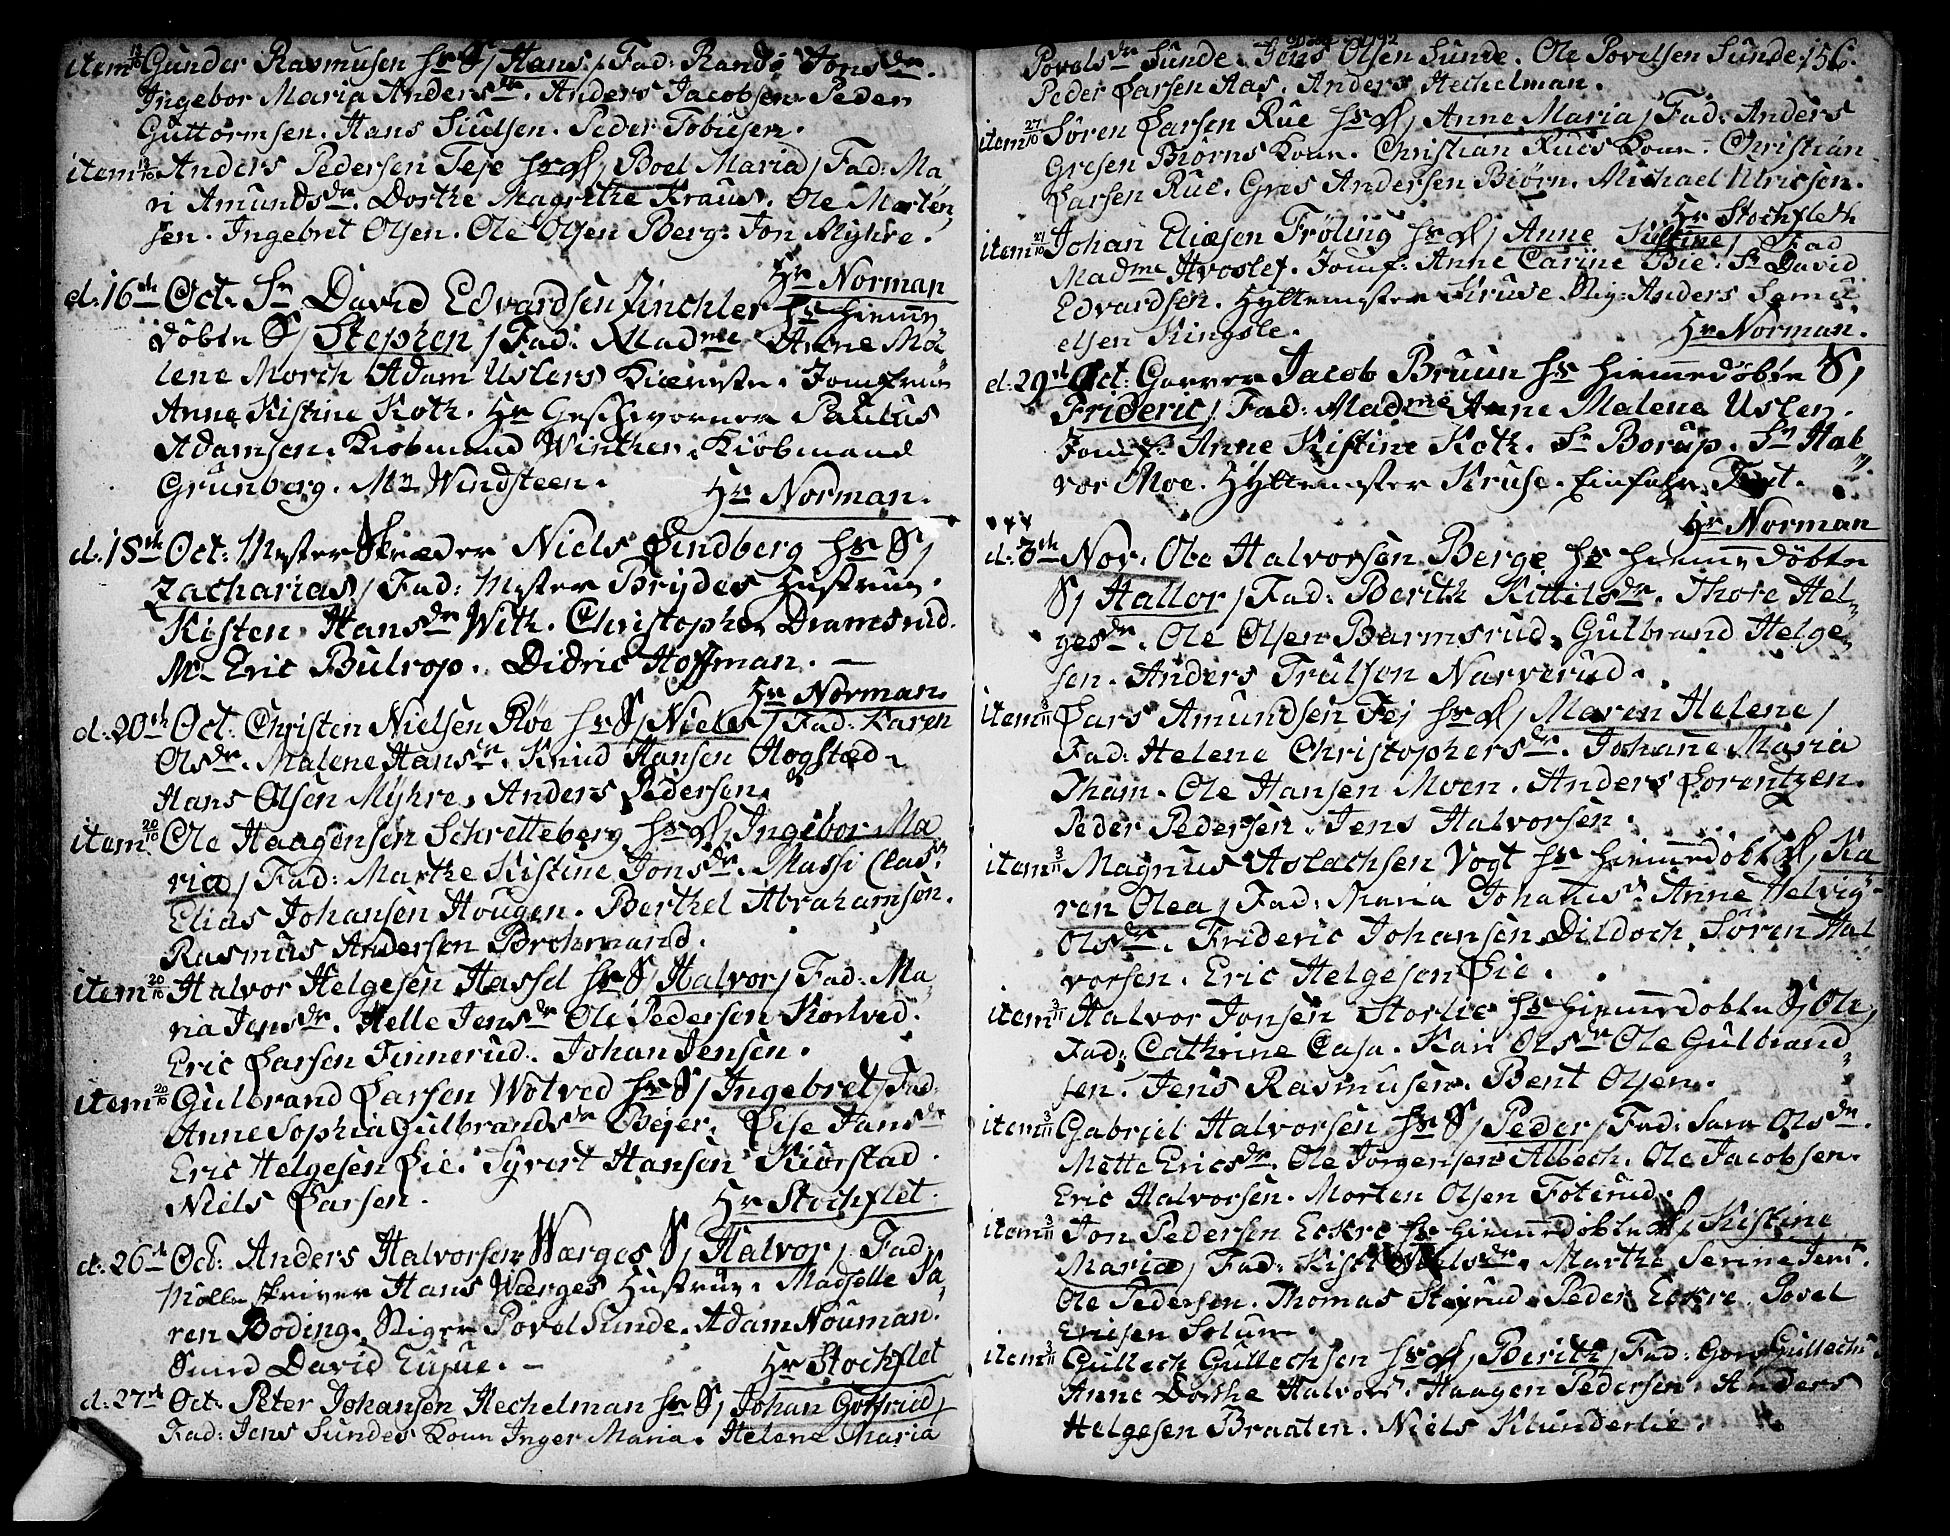 item 13/10 Gunder Rasmusen hs S, Hans, Fad: Randi Jonsdr.
Ingebor Maria Andersdr. Anders Jacobsen. Peder
Guttormsen. Hans Siulsen. Peder Tobiesen.
item 13/10 Anders Pedersen Teje hs D, Boel Maria, Fad: Ma
ri Amundsdr. Dorthe Magrethe Kraus. Ole Morten,
sen. Ingebret Olsen. Ole Olsen Berg. Jon Myhre.
Hr Norman
d. 16de Oct. Sr David Edvardsen Finchler hs hiemm
döbte S, Stephen, Fad: Madme Anne Ma
lene Morch Adam Uslers Kiæreste. Jomfrue
Anne Kistine Koth. Hr Geschworner Paulus
Adamsen. Kiöbmand Winther. Kiöbmand
Grünberg. Mr Windsteen.
Hr Norman.
d. 18de Oct: Mester Skræder Niels Lindberg hs S,
Zacharias, Fad: Mester Brydes Hustrue.
Kisten Hansdr With. Christopher Dramsrud.
Mr Eric Bulrop. Didric Hoffman. —
Hr Norman.
d. 20de Oct: Christen Nielsen Röe hs S, Niels, Fad: Karen
Olsdr. Malene Hansdr. Knud Hansen Hogstad.
Hans Olsen Myhre. Anders Pedersen.
item 20/10 Ole Haagensen Schretteberg hs D, Ingebor Ma
ria, Fad: Marthe Kistine Jonsdr. Massi Clas
Elias Johansen Hougen. Berthel Abrahamsen.
Rasmus Andersen Brohmand.
item 20/10 Halvor Helgesen Hassel hs S, Halvor, Fad: Ma,
ria Jensdr. Helle Jensdr Ole Pedersen Korlved.
Eric Larsen Tinnerud. Johan Jensen.
item 20/10 Gulbrand Larsen Wolved hs S, Ingebret, Fad:
Anne Sophia Gulbrandsdr Bejer. Lise Jansdr
Eric Helgesen Lie. Syvert Hansen Kiörstad.
Niels Larsen.
Hr Stochflet.
d. 26de Oct: Anders Halvorsen Wærges S, Halvor, Fad
Mölle skriver Hans Wærges Hustrue. Madselle Ka,
ren Boding. Stiger Povel Sunde. Adam Nouman.
Smed David
Hr Stochflet
d. 27de Oct: Peter Johansen Hechelman hs S, Johan Gotfried,
Fad: Jens Sundes Kone Inger Maria. Helene Maria
1792
156.
Povelsdr Sunde. Jens Olsen Sunde. Ole Povelsen Sunde.
Peder Larsen Aas. Anders Hechelman.
item 27/10 Sören Larsen Rue hs D, Anne Maria, Fad: Anders
Gresen Biörns Kone. Christian Rues Kone. Christian
Larsen Rue. Gres Andersen Biörn. Michael Ulricsen.
Hr Stochfleth
item 27/10 Johan Eliæsen Fröling hs D, Anne Kistine, Fad
Madme Hvoslef. Jomf: Anne Carine Bie. Sr David
Edvardsen. Hyttemester Kruse. Stig: Anders Samu
elsen Kingsle.
Hr Norman.
d. 29de Oct: Garver Jacob Bruun hs hiemmedöbte S,
Frideric, Fad: Madme Anne Malene Usler.
Jomf: Anne Kistine Koth. Sr Borup. Sr Hal
vor Moe. Hyttemester Kruse. Einfahr
Hr Norman
d. 3de Nov. Ole Halvorsen Berge hs hiemmedöbte
S, Hallor, Fad: Berith Kittilsdr. Thore Hel,
gesdr. Ole Olsen Barmsrud. Gulbrand Helge,
sen. Anders Trulson Narverud.
item 3/11 Lars Amundsen Fej hs D, Maren Helene,
Fad: Helene Christophersdr. Johanne Maria
Tham. Ole Hansen Moen. Anders Lorentzen.
Peder Pedersen. Jens Halvorsen.
item 3/11 Magnus Aslachsen Vogt hs hiemmedöbt D, Ka
ren Olea, Fad: Maria Johansdr Anne Helvig
Olsdr. Frideric Johansen Dildoch. Sören Hal
vorsen. Eric Helgesen Lie.
item 3/11 Halvor Jonsen Storlie hs hiemmedöbte S, Ole,
Fad: Cathrine Casa. Kari Olsdr Ole Gulbrand
sen. Jens Rasmusen. Bent Olsen.
item 3/11 Gabriel Halvorsen hs S, Peder, Fad: Sara Olsdr.
Mette Ericsdr. Ole Jörgensen Albech. Ole Jacobsen.
Eric Halvorsen. Morten Olsen Foterud.
item 3/11 Jon Pedersen Eckre hs hiemmedöbte D, Kistine
Maria, Fad: Kisti Nielsdr. Marthe Serine Jens
Ole Pedersen. Thomas Steyrud. Peder Eckre. Povel
Ericsen Solum.
item 3/11 Gullech Gullechsen hs D, Berith, Fad: Goro Gullechs
Anne Dorthe Halvors. Haagen Pedersen. Anders
Helgesen Braaten. Niels Klunderlie.